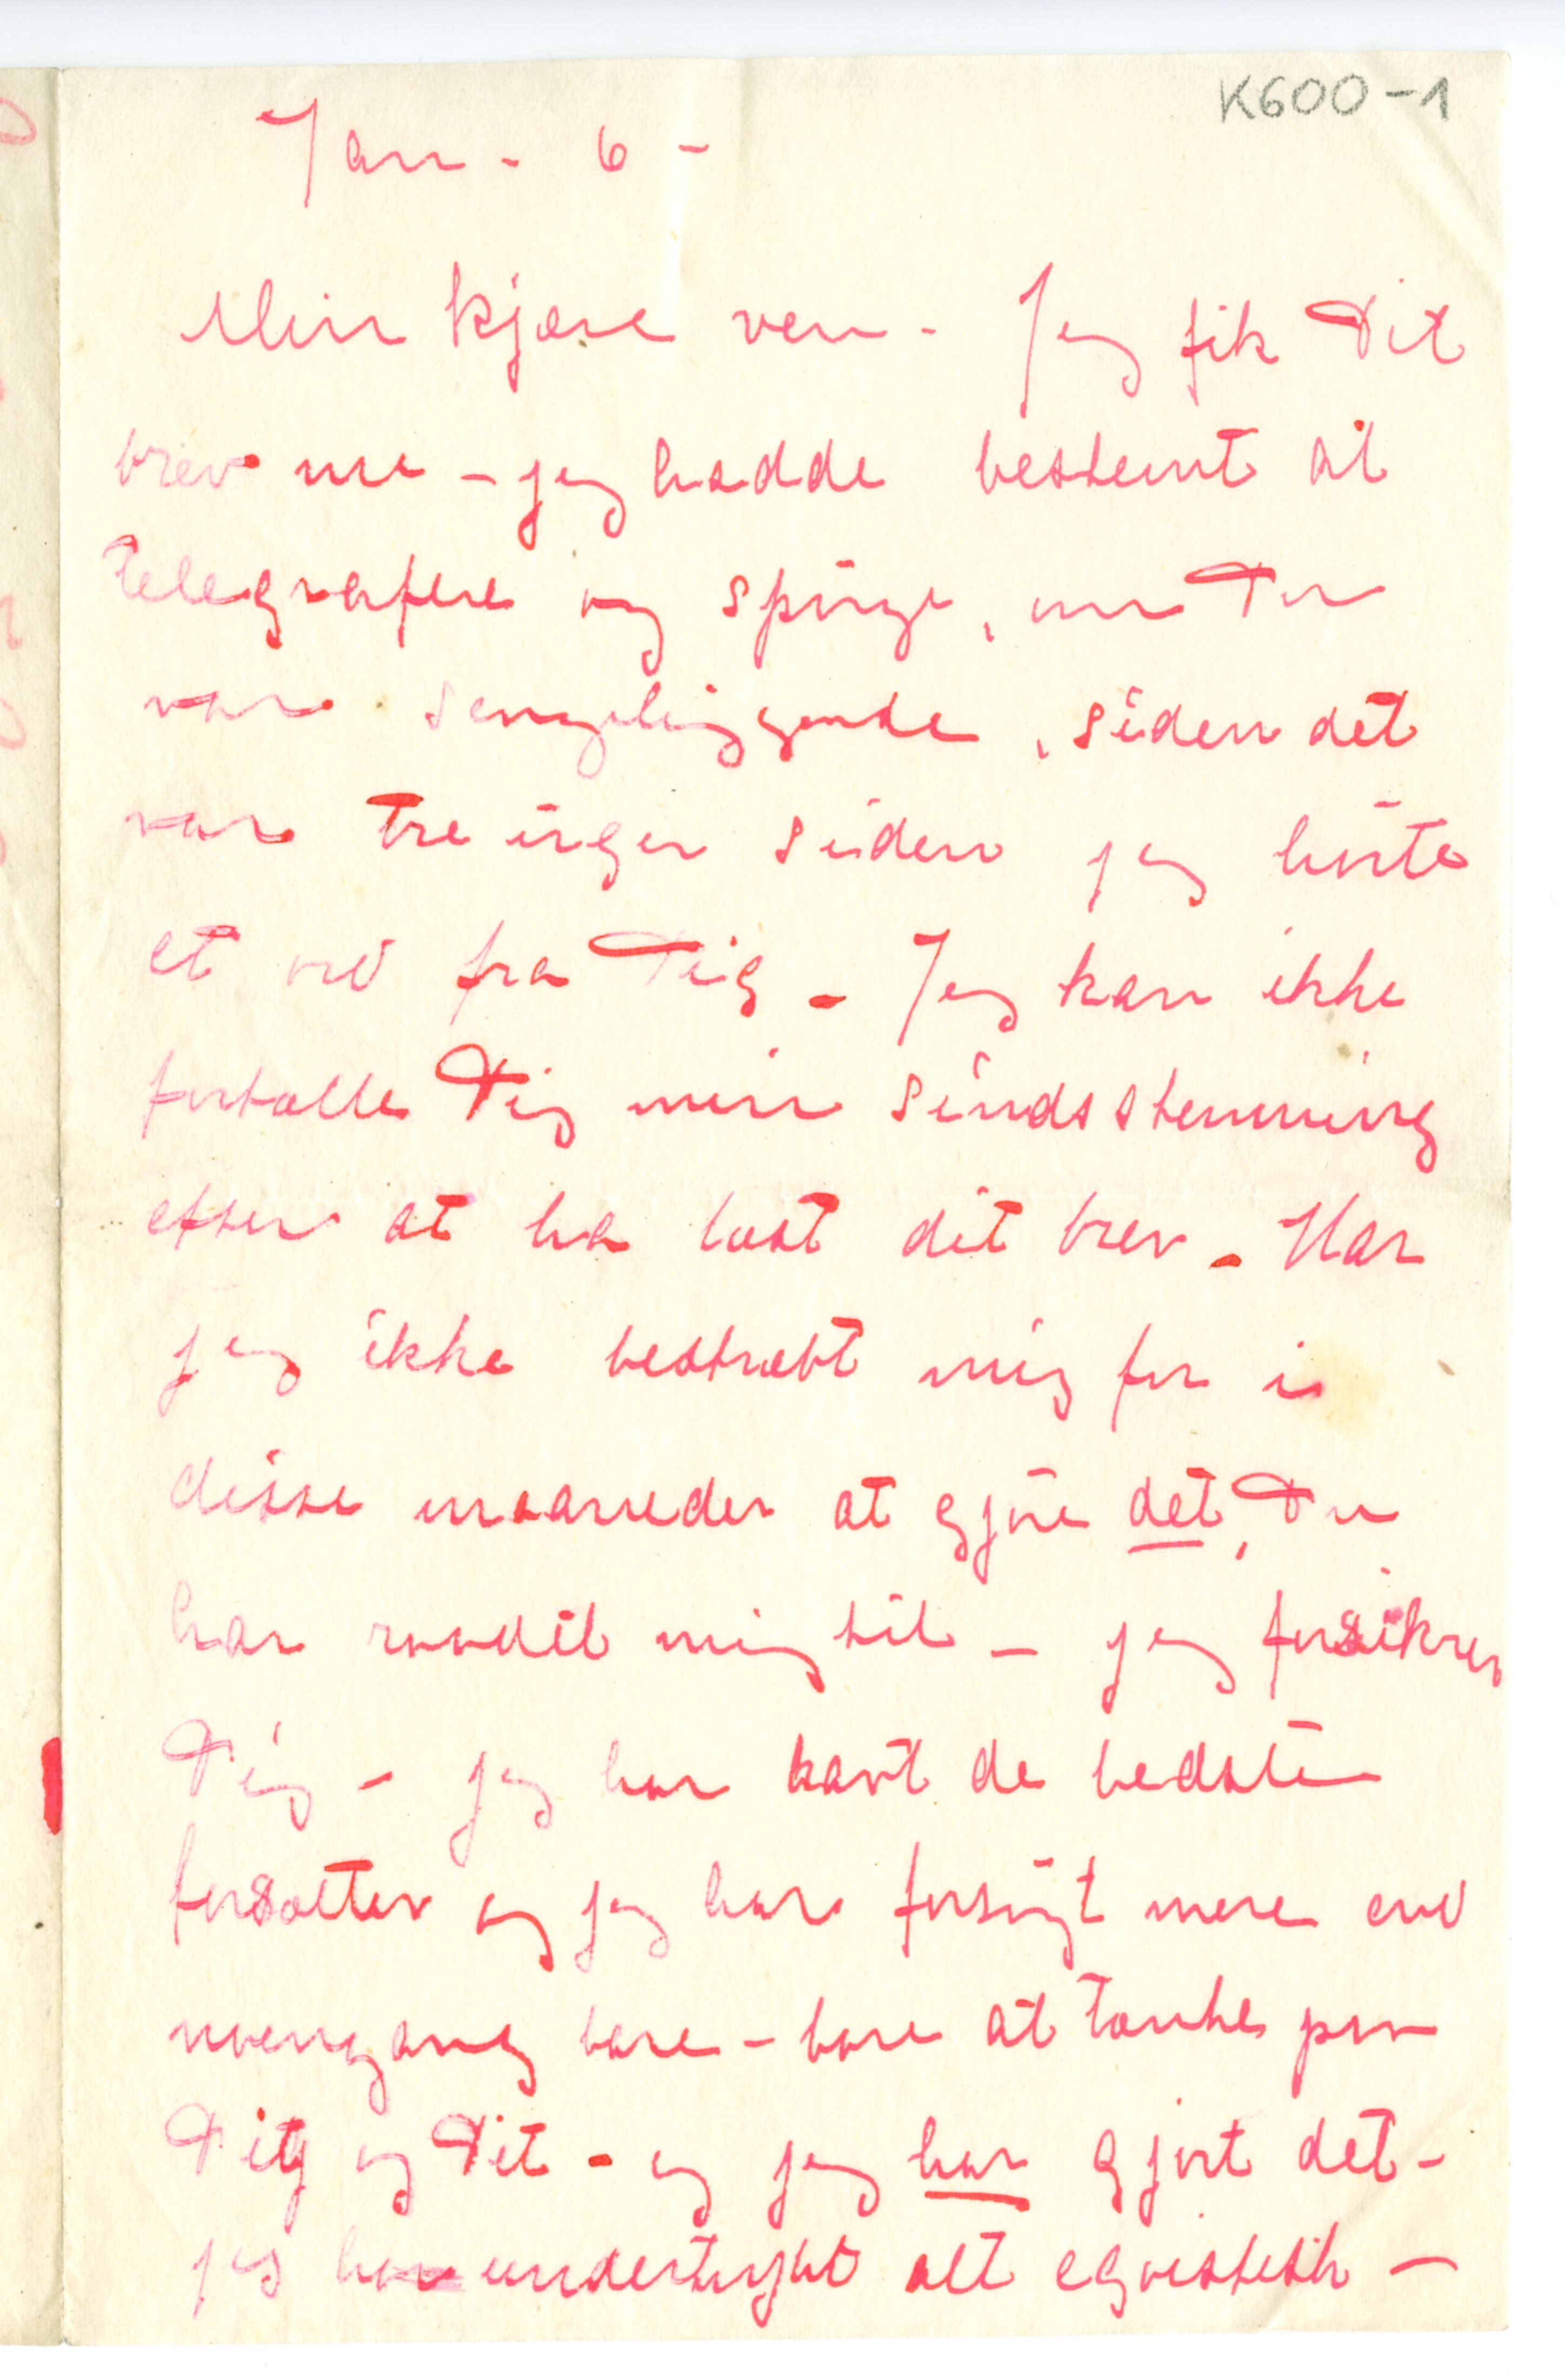 K600-1
Jan - 6 -
Min kjære ven - Jeg fik Dit
brev nu - jeg hadde bestemt at
telegrafere og spørge, om Du
var sengeliggende, siden det
var tre uger siden jeg hørte
et ord fra Dig - Jeg kan ikke
fortælle Dig min sindsstemning
efter at ha læst dit brev - Har
jeg ikke bestræbt mig for i
disse maaneder at gjøre det, Du
har raadet mig til - jeg forsikrer
Dig - jeg har havt de bedste
forsætter og jeg har forsøgt mere end
noengang bare - bare at tænke paa
Dig og Dit - og jeg har gjort det -
jeg har undertrykt alt egoistisk -